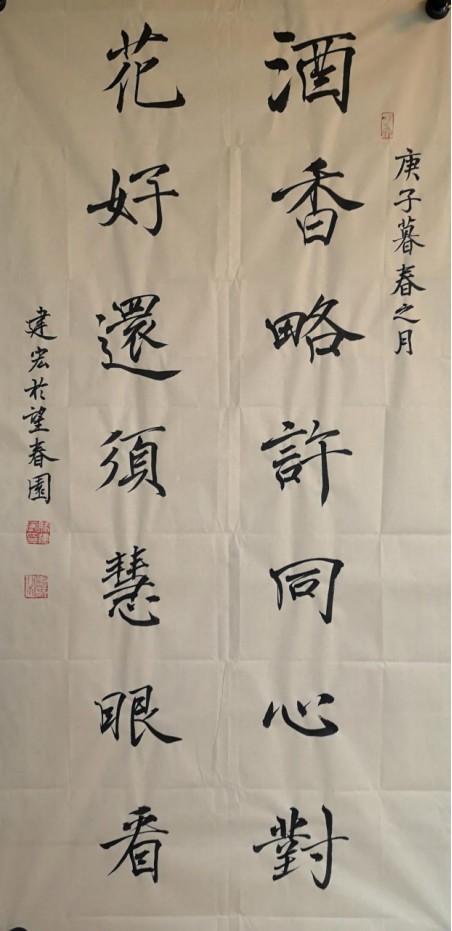 庚子暮春之月
酒香略許同心對
花好還須慧眼看
建宏於望春園